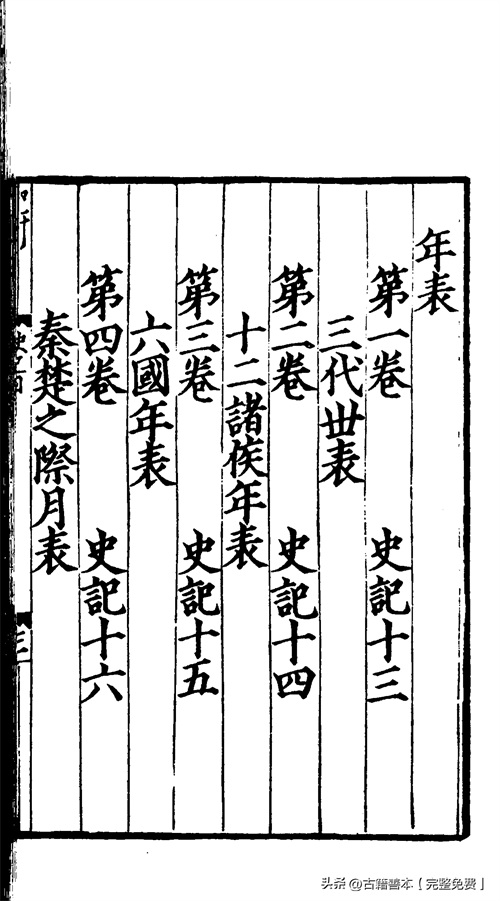 年表
第一卷 史記十三
三代世表
第二卷 史記十四
十二諸侯年表
第三卷 史記十五
六國年表
第四卷 史記十六
秦楚之際月表
三
头条 @古籍善本【完整免费】